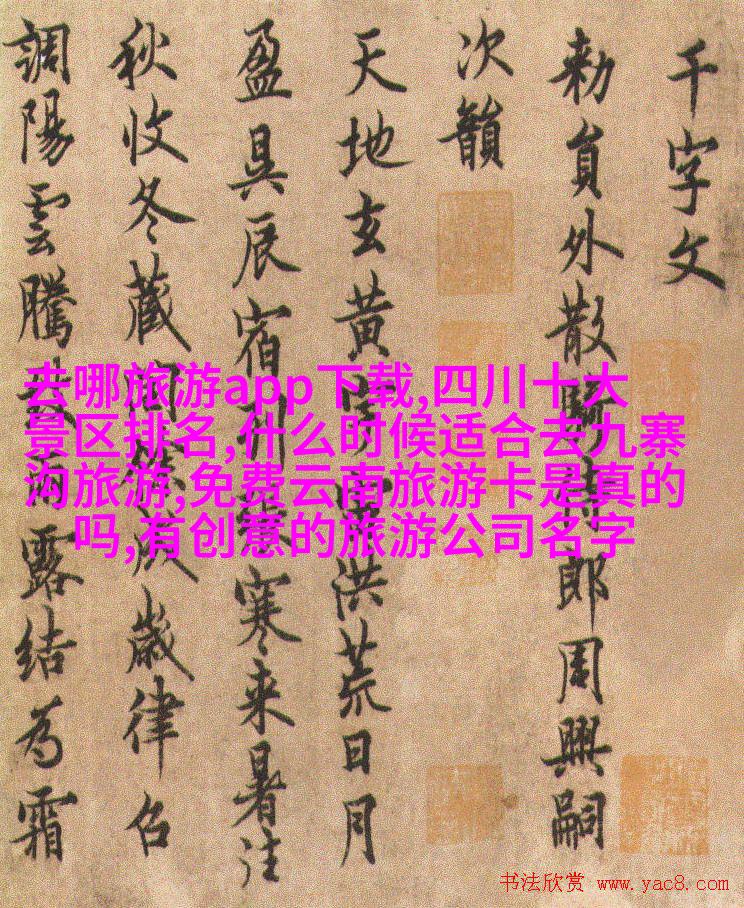 千字文
勅員外散騎侍郎周興嗣
次韻
天地玄黃宇宙洪荒日月
盈昃辰宿列張寒来暑往
秋收冬藏閏餘成歲律召
調陽雲騰致雨露結為霜
去哪旅游app下载,四川十大
景区排名,什么时候适合去九寨
沟旅游,免费云南旅游卡是真的
吗,有创意的旅游公司名字
书法欣赏 www.yac8.com